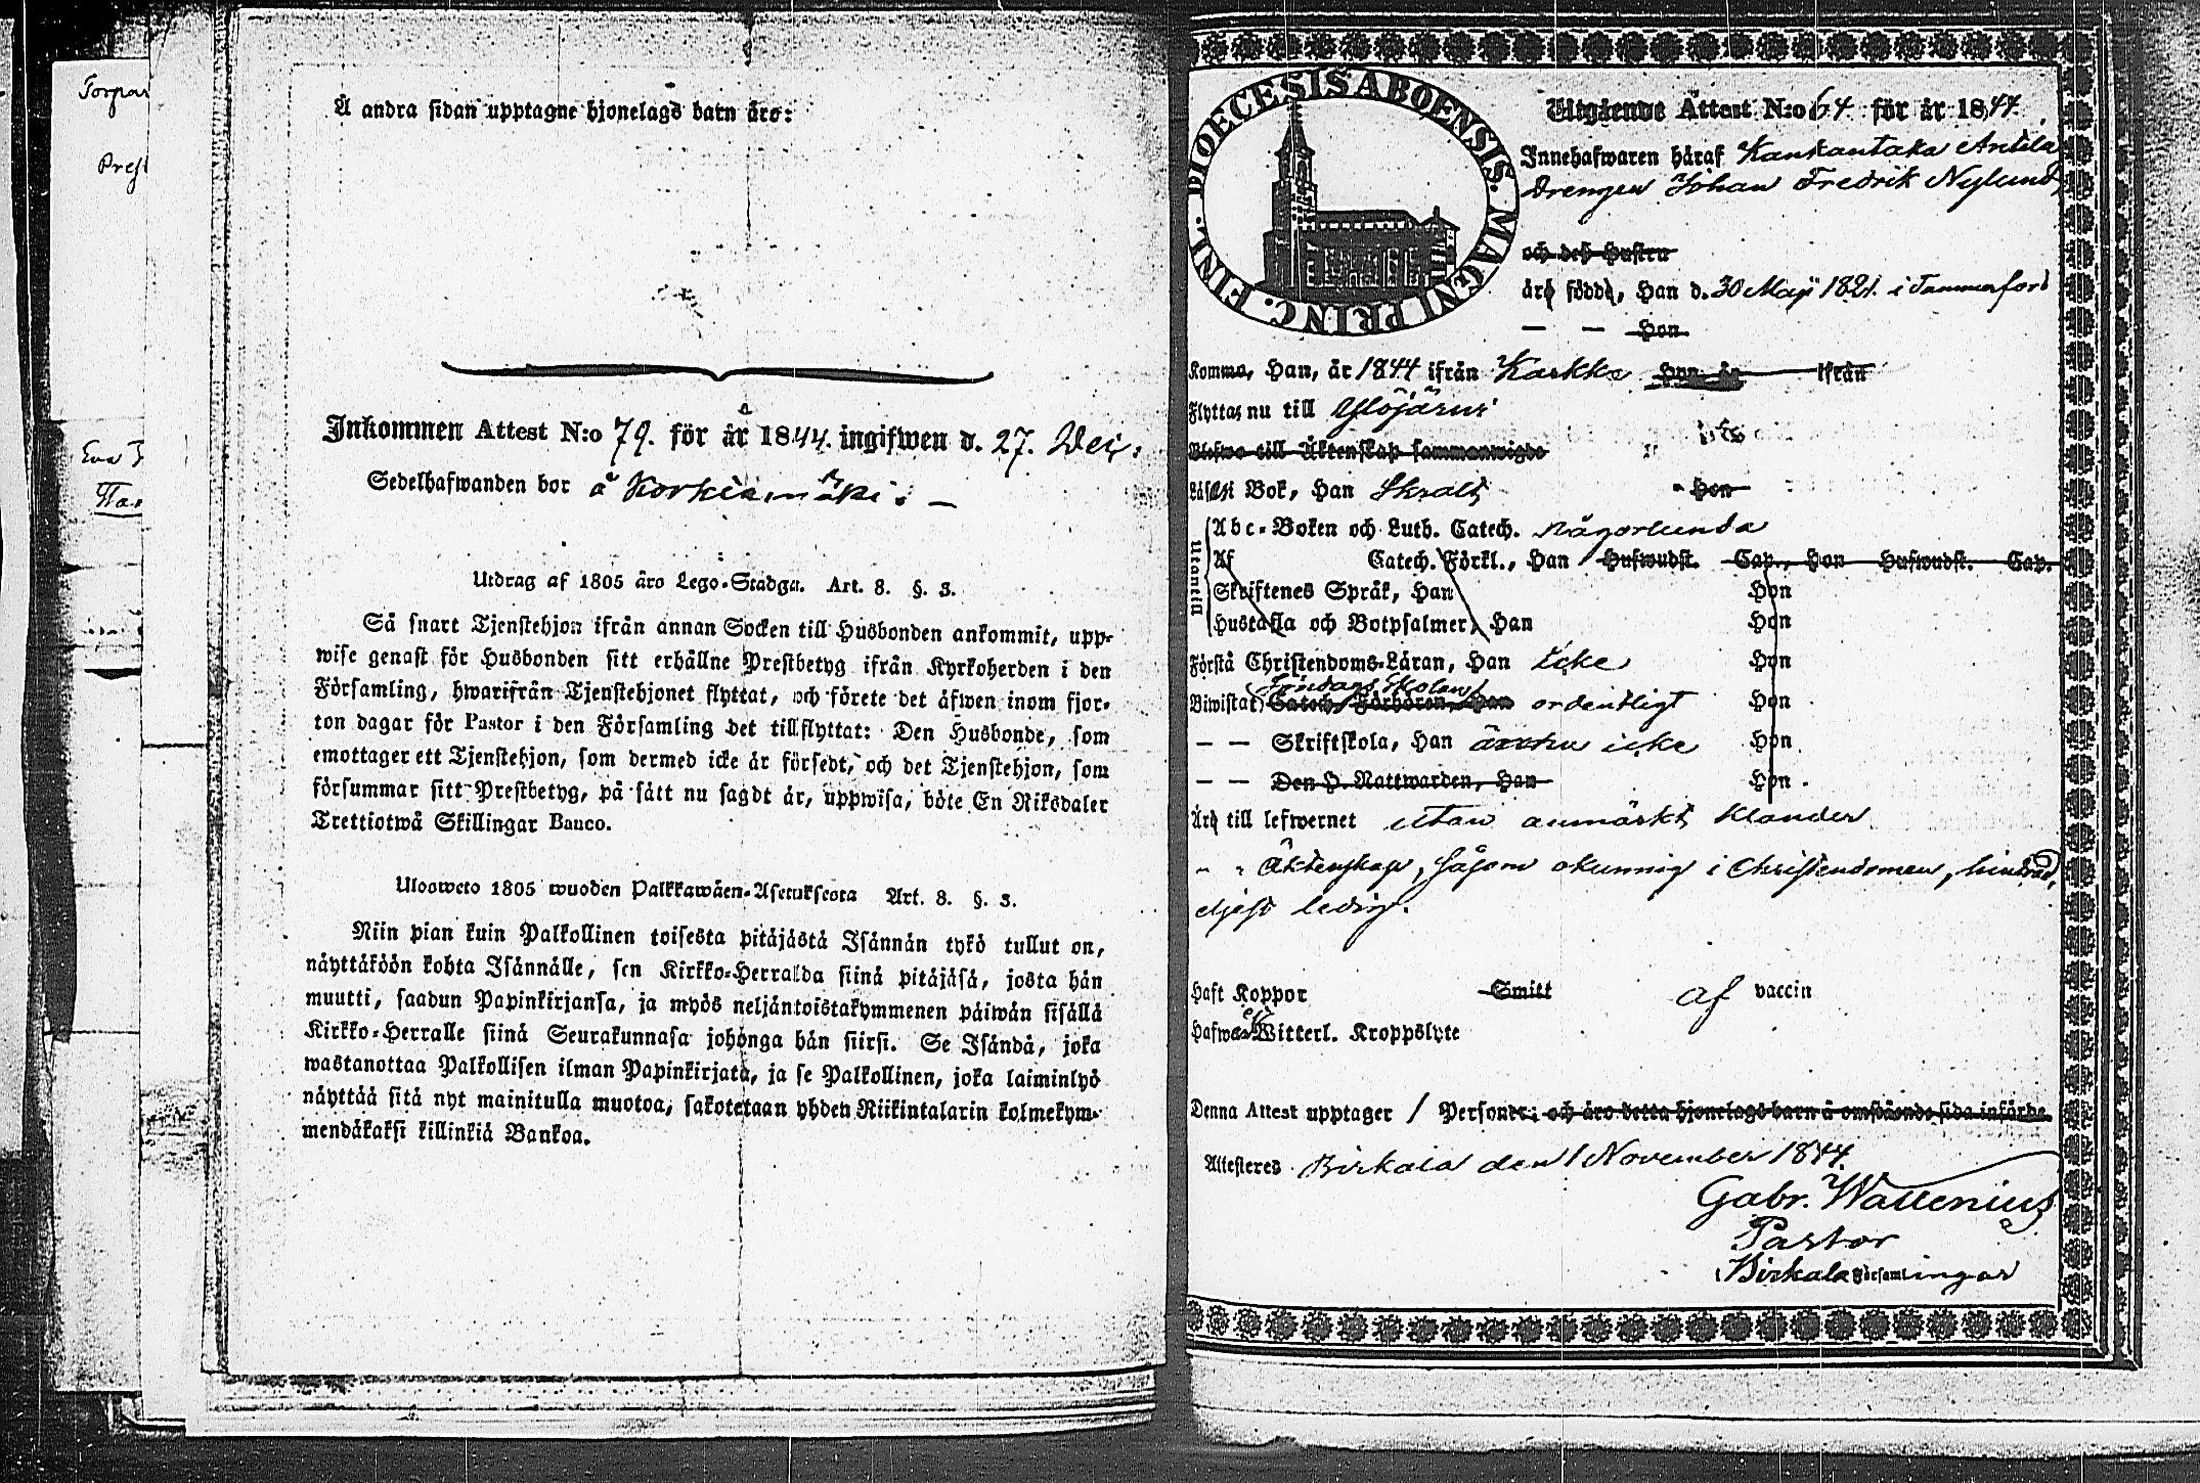 Torpar
Prest
Eva
Å andra sidan upptagne hjonelags barn äro:
Inkommen Attest N:o 79. för år 1844. ingifwen d. 27. Dec:
Sedelhafwanden bor å Korkiamäki. —
Utdrag af 1805 års Lego-Stadga. Art. 8. §. 3.
Så snart Tjenstehjon ifrån annan Socken till Husbonden ankommit, upp-
wise genast för Husbonden sitt erhållne Prestbetyg ifrån Kyrkoherden i den
Församling, hwarifrån Tjenstehjonet flyttat, och förete det äfwen inom fjor-
ton dagar för Pastor i den Församling det tillflyttat: Den Husbonde, som
emottager ett Tjenstehjon, som dermed icke är försedt, och det Tjenstehjon, som
försummar sitt Prestbetyg, på sätt nu sagdt är, uppwisa, böte En Riksdaler
Trettiotwå Skillingar Banco.
Ulosweto 1805 wuoden Palkkawäen-Asetuksesta Art. 8. §. 3.
Niin pian kuin Palkollinen toisesta pitäjästä Isännän tykö tullut on,
näyttäköön kohta Isännälle, sen Kirkko-Herralda siinä pitäjäsä, josta hän
muutti, saadun Papinkirjansa, ja myös neljäntoistakymmenen päiwän sisällä
Kirkko-Herralle siinä Seurakunnasa johonga hän siirsi. Se Isändä, joka
wastanottaa Palkollisen ilman Papinkirjata, ja se Palkollinen, joka laiminlyö
näyttää sitä nyt mainitulla muotoa, sakotetaan yhden Riikintalarin kolmekym-
mendäkaksi killinkiä Bankoa.
DIOECESIS ABOENSIS. MAGNI PRINC. FINL.
Utgående Attest N:o 64 för år 1844.
Innehafwaren häraf Kankantaka Antila
Drengen Johan Fredrik Nylund
och deß Hustru
äro födde, Han d. 30 Maji 1821. i Tammerfors
— — Hon
Komma, Han, år 1844 ifrån Karkku Hon år ifrån
Flyttar nu till Ylöjärvi
Blefwo till Äktenskap sammanwigde
Läser i Bok, Han Skralt Hon
Utantill
Abc-Boken och Luth. Catech. Någorlunda
Af Catech. Förkl., Han Hufwudst. Cap., Hon Hufwudst. Cap.
Skriftenes Språk, Han Hon
Hustafla och Botpsalmer, Han Hon
Förstå Christendoms-Läran, Han icke Hon
Söndags Skolan
Biwistat Catech. Förhören, Han ordentligt Hon
— — Skriftskola, Han ännu icke Hon
— — Den H. Nattwarden, Han Hon
Äro till lefwernet utan anmärkt klander
" " Äktenskap, såsom okunnig i Christendomen, hindrad,
eljest ledig.
Haft Koppor Smitt af vaccin
Hafwa ej Witterl. Kroppslyte
Denna Attest upptager 1 Personer: och äro detta hjonelags barn å omstående sida införde.
Attesteres Birkala den 1 November 1844.
Gabr. Wallenius
Pastor
i Birkala Församlingar